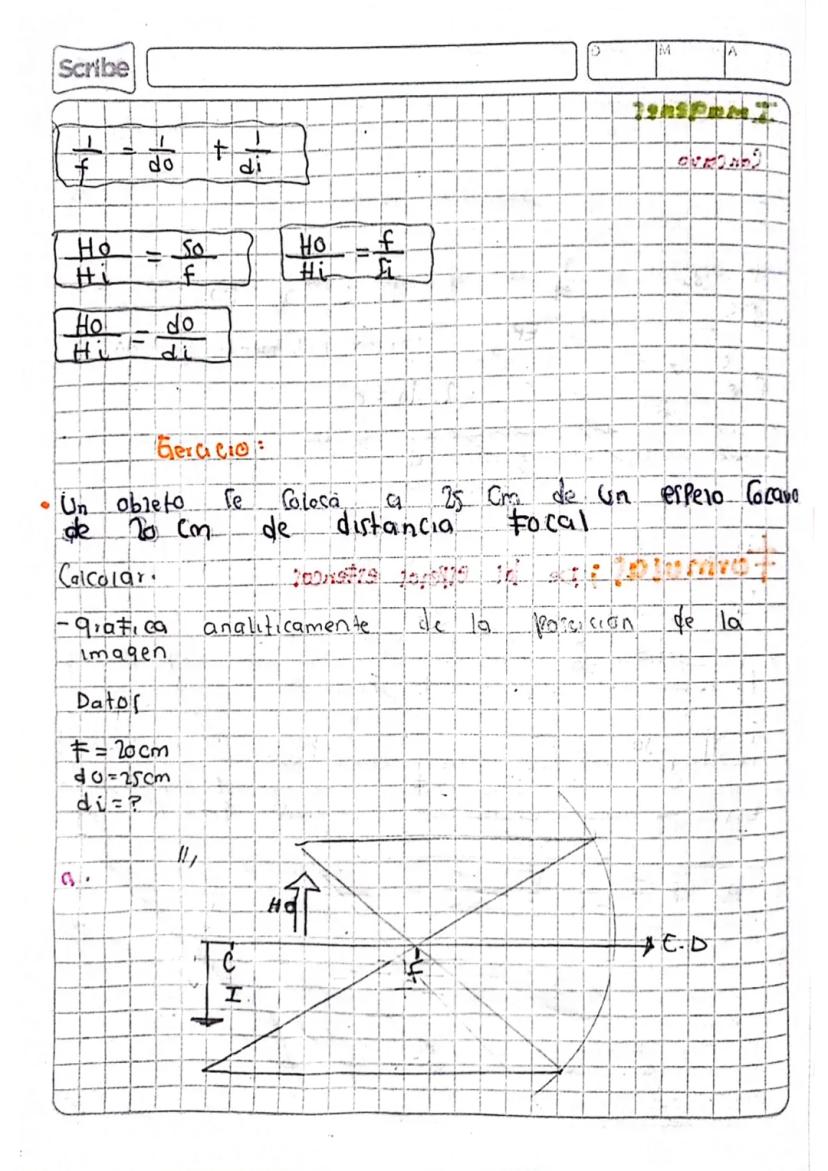 Scribe
D M A
1/f = 1/do + 1/di
Ho/Hi = So/f
Ho/Hi = f/Si
Ho/Hi = do/di
Ejercicio:
• Un objeto se coloca a 25 Cm de un espejo Cocavo
de 20 Cm de distancia focal
Calcolar.
- grafica analiticamente de la poscision de la
imagen
Datos
F = 20cm
do = 25cm
di = ?
a.
Ho
C
f
I
E.D